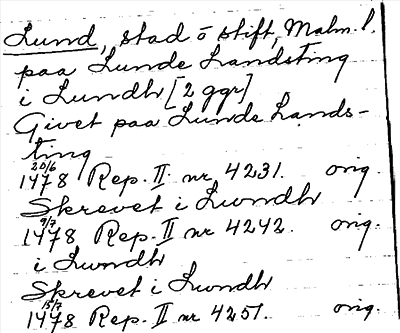 Lund, stad o stift, Malm. l.
paa Lunde Landsting
i Lundh [2 ggr]
Givet paa Lunde Lands-
ting
20/6 1478 Rep. II nr 4231. orig.
Skrevet i Lundh
9/7 1478 Rep. II nr 4242. orig.
i Lundh
Skrevet i Lundh
15/7 1478 Rep. II nr 4251. orig.